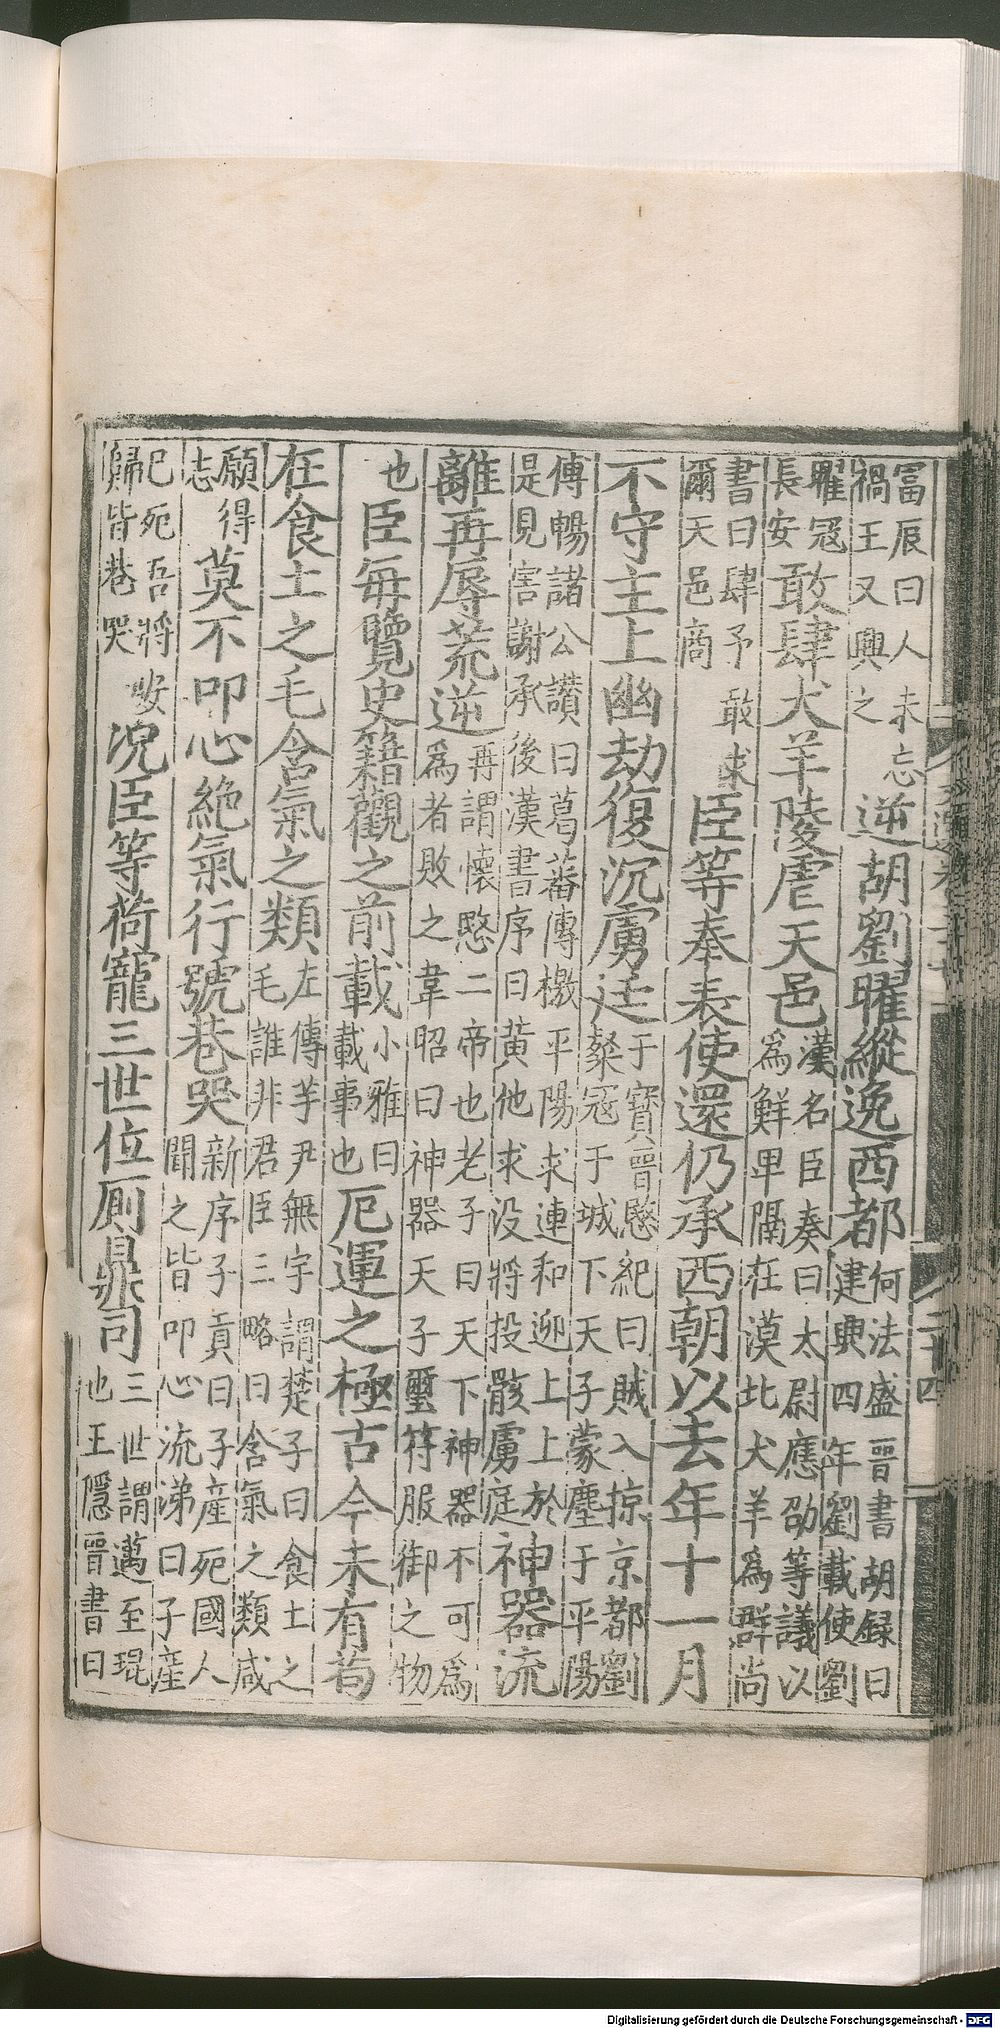 冨辰曰人未忘禍王又興之逆胡劉曜縱逸西都何法盛晉書胡録曰建興四年劉載使劉
曜寇長安敢肆犬羊陵虐天邑漢名臣奏曰太尉應劭等議以為鮮卑隔在漠北犬羊為群尚
書曰肆予敢求爾天邑商臣等奉表使還仍承西朝以去年十一月
不守主上幽劫復沉虜廷于寶晉愍紀曰賊入掠京都劉粲寇于城下天子蒙塵于平陽
傅暢諸公讃曰葛蕃傳檄平陽求連和迎上上於是見害謝承後漢書序曰黃他求没將投骸虜庭神器流
離再辱荒逆再謂懷愍二帝也老子曰天下神器不可為為者敗之韋昭曰神器天子璽符服御之物
也臣每覽史籍觀之前載小雅曰載事也厄運之極古今未有苟
在食土之毛含氣之類左傳芋尹無宇謂楚子曰食土之毛誰非君臣三略曰含氣之類咸
願得志莫不叩心絶氣行號巷哭新序子貢曰子產死國人聞之皆叩心流涕曰子產
已死吾將安歸皆巷哭況臣等荷寵三世位厠鼎司三世謂邁至琨也王隱晉書曰
二十四
Digitalisierung gefördert durch die Deutsche Forschungsgemeinschaft - DFG